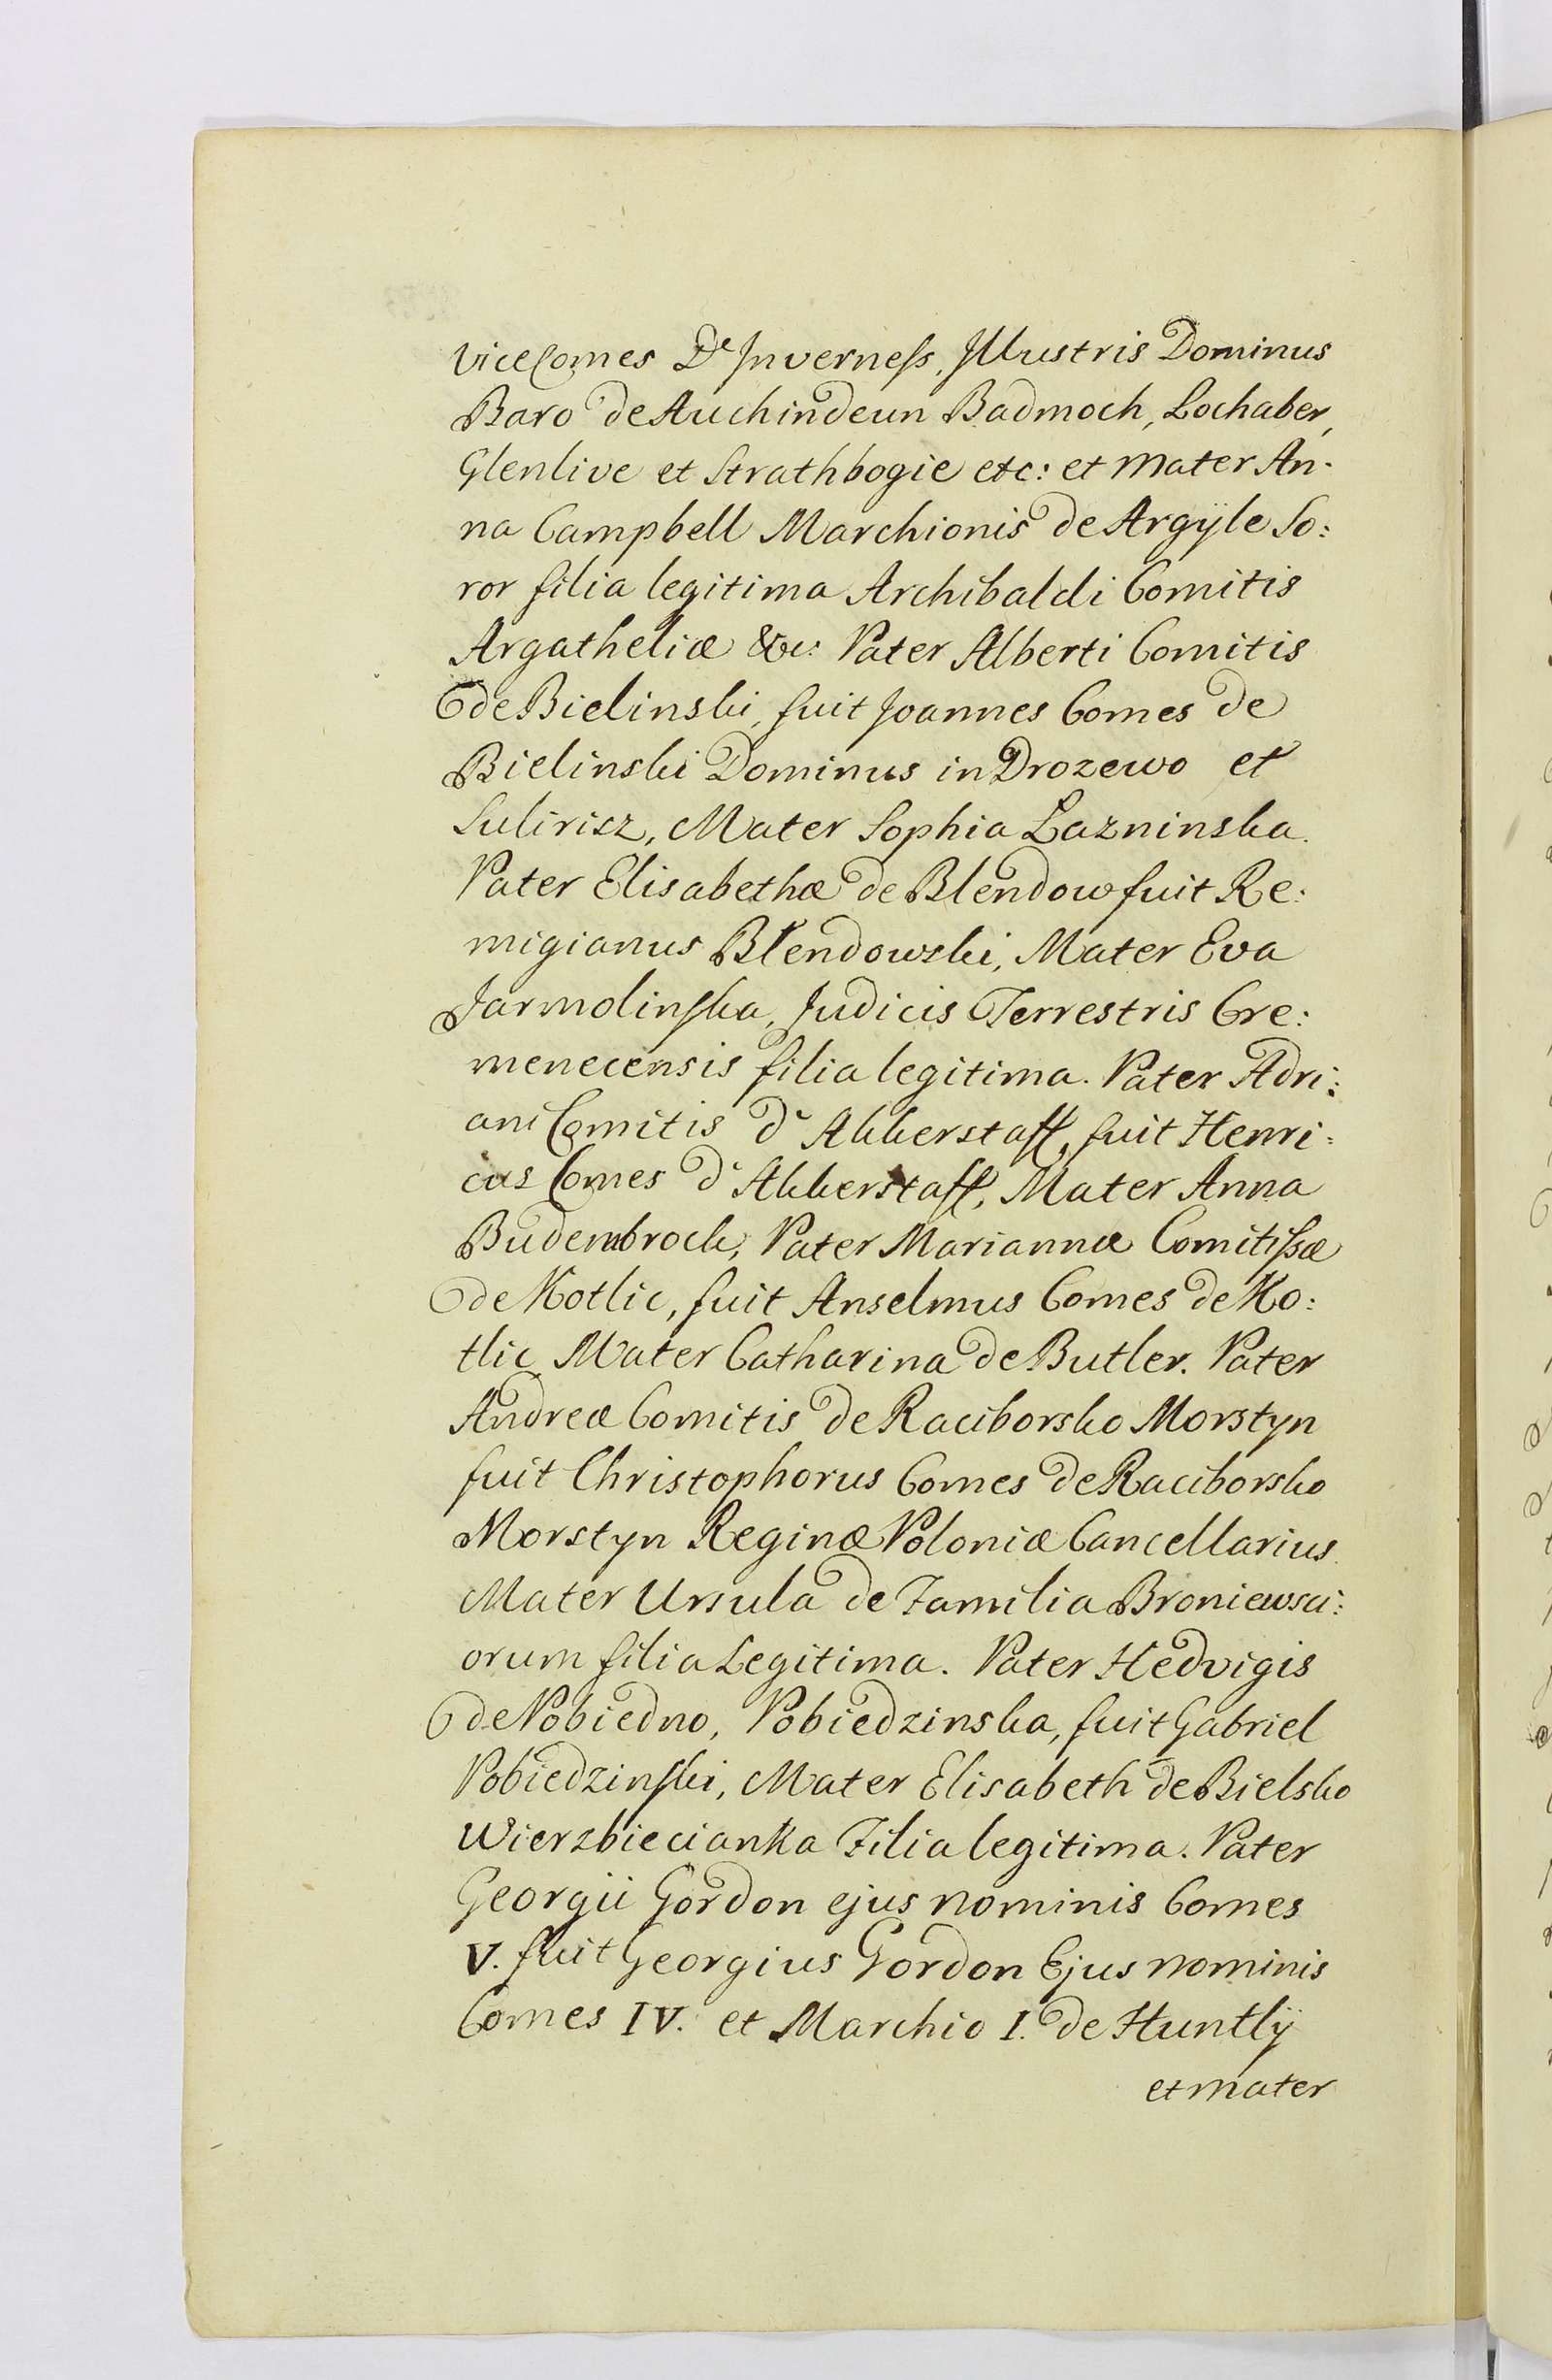 ViceComes De Inverness, Illustris Dominus
Baro de Auchindeun Badmoch, Lochaber,
Glenlive et Strathbogie etc: et Mater An-
na Campbell Marchionis de Argÿle So:
ror filia legitima Archibaldi Comitis
Argatheliæ &c: Pater Alberti Comitis
de Bielinski, fuit Joannes Comes de
Bielinski Dominus in Drozewo et
Sulirisz, Mater Sophia Lazninska.
Pater Elisabethæ de Blendow fuit Re:
migianus Blendowski, Mater Eva
Jarmolinska, Judicis Terrestris Cre:
menecensis filia legitima. Pater Adri:
ani Comitis d'Akkerstaff, fuit Henri:
cus Comes d'Akkerstaff, Mater Anna
Budembrock, Pater Mariannæ Comitissæ
de Kotlic, fuit Anselmus Comes de Ko:
tlic Mater Catharina de Butler. Pater
Andreæ Comitis de Raciborsko Morstyn
fuit Christophorus Comes de Raciborsko
Morstyn Reginæ Poloniæ Cancellarius.
Mater Ursula de Familia Broniewsci:
orum filia Legitima. Pater Hedvigis
de Pobiedno, Pobiedzinska, fuit Gabriel
Pobiedzinski, Mater Elisabeth de Bielsko
Wierzbiecianka Filia legitima. Pater
Georgii Gordon ejus nominis Comes
V. fuit Georgius Gordon Ejus nominis
Comes IV. et Marchio I. de Huntlÿ
et mater